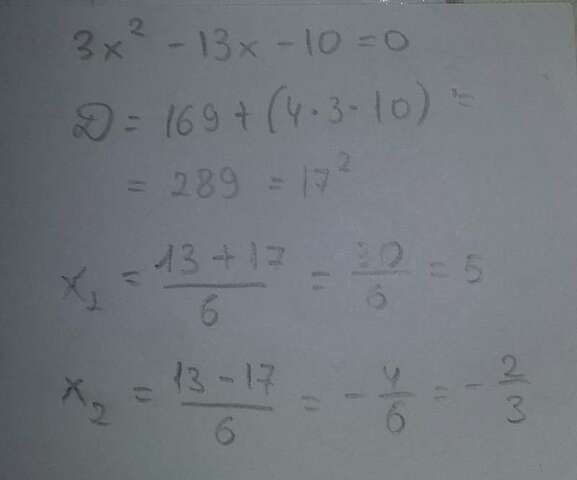 3x² - 13x - 10 = 0
D = 169 + (4·3·10) =
= 289 = 17²
x₁ = (13 + 17)/6 = 30/6 = 5
x₂ = (13 - 17)/6 = -4/6 = -2/3